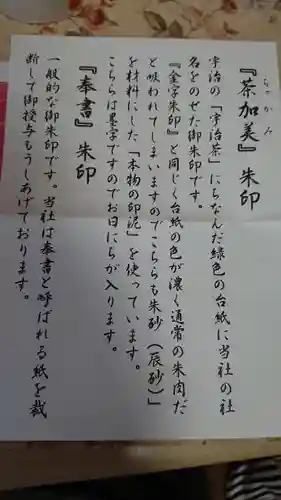 『茶加美』朱印
ちゃかみ
宇治の「宇治茶」にちなんだ緑色の台紙に当社の社
名をのせた御朱印です。
『金字朱印』と同じく台紙の色が濃く通常の朱肉だ
と吸われてしまいますのでこちらも朱砂（辰砂）」
を材料にした「本物の印泥」を使っています。
こちらは墨字ですのでお日にちが入ります。
『奉書』朱印
一般的な御朱印です。当社は奉書と呼ばれる紙を裁
断して御授与もうしあげております。